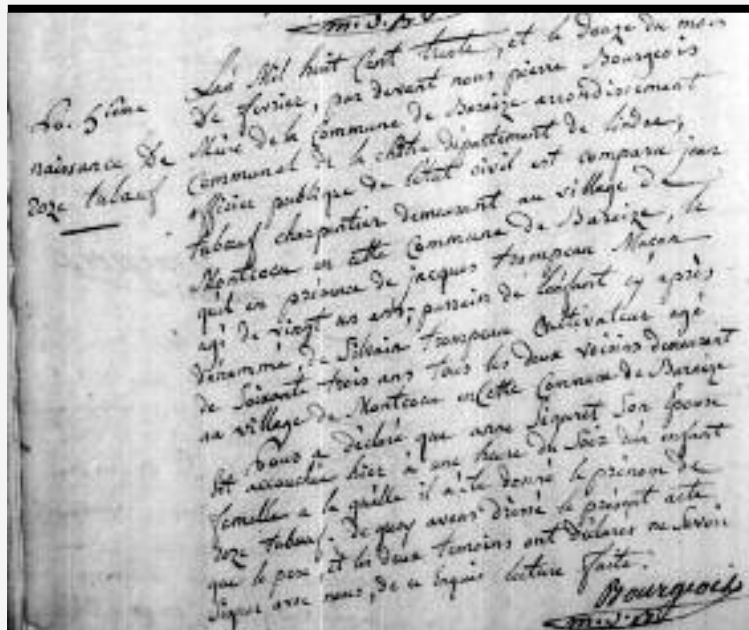 m.s.B
No. 5ième
naissance de
roze tabœuf
Lan Mil huit Cent trente, et le douze du mois
de fevrier, par devant nous pierre Bourgeois
Maire de la Commune de Bareize arrondissement
Communal de la châtre département de lindre,
officier publique de létat civil est comparu jean
tabœuf charpentier demeurant au village de
Montcocu en cette Commune de Bareize, le
quel en présence de jacques trompeau Maçon
agé de vingt un ans, parrain de lenfant cy après
dénommé, de Silvain trompeau Cultivateur agé
de Soixante trois ans tous les deux voisins demeurant
au village de Montcocu en Cette Commune de Bareize
Nous a déclaré que anne Séguret Son épouse
est accouchée hier à une heure du Soir dun enfant
femelle a la quelle il a été donné le prénom de
roze tabœuf. de quoy avons dressé le présent acte
que le pere, et les deux temoins ont déclarés ne Savoir
Signer avec nous, de ce Enquis lecture faite.
Bourgeois
m.s.B